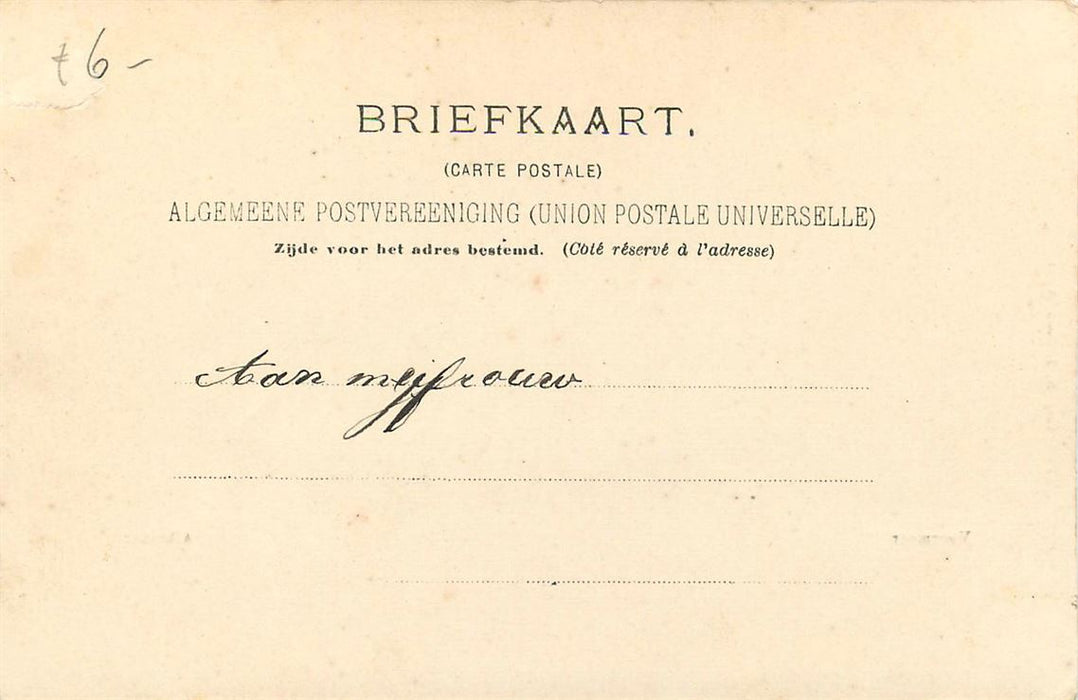 6-
BRIEFKAART.
(CARTE POSTALE)
ALGEMEENE POSTVEREENIGING (UNION POSTALE UNIVERSELLE)
Zijde voor het adres bestemd. (Côté réservé à l'adresse)
Aan mejfrouw